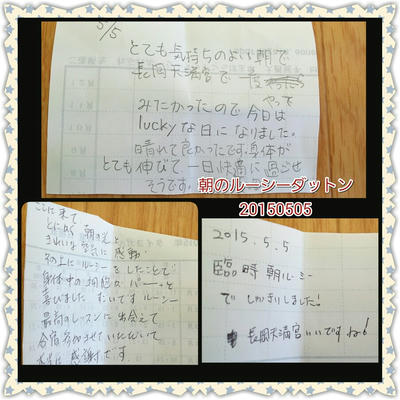 5/5
とても気持ちのよい朝で
長岡天満宮で一度
やって
みたかったので今日は
luckyな日になりました。
晴れて良かったです。身体が
とても伸びて、一日快適に過ごせ
そうです。
朝のルーシーダットン
20150505
ここに来て
とにかく朝の光と
きれいな空気に感動
その上にルーシーをしたことで
身体中の細胞がパーッと
喜びました すごいです ルーシー
最高のレッスンに出会えて
合宿参加させていただいて
本当に感謝です。
2015.5.5
臨時朝ルーシー
でしゃきりしました!
長岡天満宮いいですね!